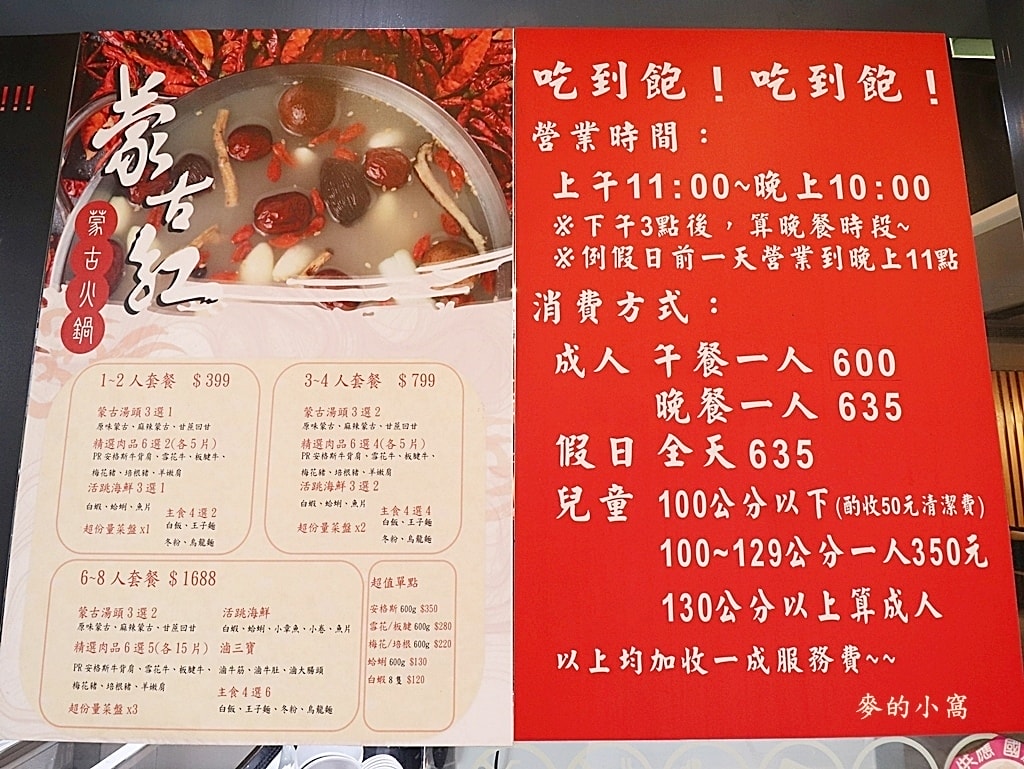 !!!
蒙古紅
蒙古火鍋
1~2 人套餐 $399
蒙古湯頭 3 選 1
原味蒙古、麻辣蒙古、甘蔗回甘
精選肉品 6 選 2(各 5 片)
PR 安格斯牛背肩、雪花牛、板腱牛、
梅花豬、培根豬、羊嫩肩
活跳海鮮 3 選 1
白蝦、蛤蜊、魚片
主食 4 選 2
白飯、王子麵
冬粉、烏龍麵
超份量菜盤 x1
3~4 人套餐 $799
蒙古湯頭 3 選 2
原味蒙古、麻辣蒙古、甘蔗回甘
精選肉品 6 選 4(各 5 片)
PR 安格斯牛背肩、雪花牛、板腱牛、
梅花豬、培根豬、羊嫩肩
活跳海鮮 3 選 2
白蝦、蛤蜊、魚片
主食 4 選 4
白飯、王子麵
冬粉、烏龍麵
超份量菜盤 x2
6~8 人套餐 $1688
蒙古湯頭 3 選 2
原味蒙古、麻辣蒙古、甘蔗回甘
精選肉品 6 選 5(各 15 片)
PR 安格斯牛背肩、雪花牛、板腱牛、
梅花豬、培根豬、羊嫩肩
超份量菜盤 x3
活跳海鮮
白蝦、蛤蜊、小章魚、小卷、魚片
滷三寶
滷牛筋、滷牛肚、滷大腸頭
主食 4 選 6
白飯、王子麵、冬粉、烏龍麵
超值單點
安格斯 600g $350
雪花/板腱 600g $280
梅花/培根 600g $220
蛤蜊 600g $130
白蝦 8 隻 $120
吃到飽！吃到飽！
營業時間：
上午11:00~晚上10:00
※下午3點後，算晚餐時段~
※例假日前一天營業到晚上11點
消費方式：
成人 午餐一人 600
晚餐一人 635
假日 全天 635
兒童 100公分以下(酌收50元清潔費)
100~129公分一人350元
130公分以上算成人
以上均加收一成服務費~~
麥的小窩